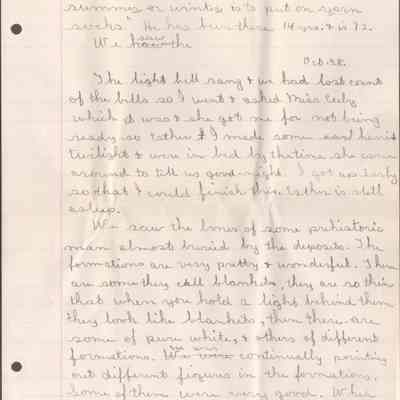 summer or winter to put on yarn
socks." He has been there 14 yrs. & is 72.
We saw the
Oct. 28.
The light bell rang & we had lost count
of the bells so I went & asked Miss
which it was & she got me for not being
ready so Esther & I made some
twilight & were in bed by the time she came
around to tell us good-night. I got up early
so that I could finish this. Esther is still
asleep.
We saw the bones of some prehistoric
man almost buried by the deposits. The
formations are very pretty & wonderful. There
are some they call blankets, they are so thin
that when you hold a light behind them
they look like blankets, then there are
some of pure white, & others of different
formations. We were continually pointing
out different figures in the formations.
Some of them were very good. When